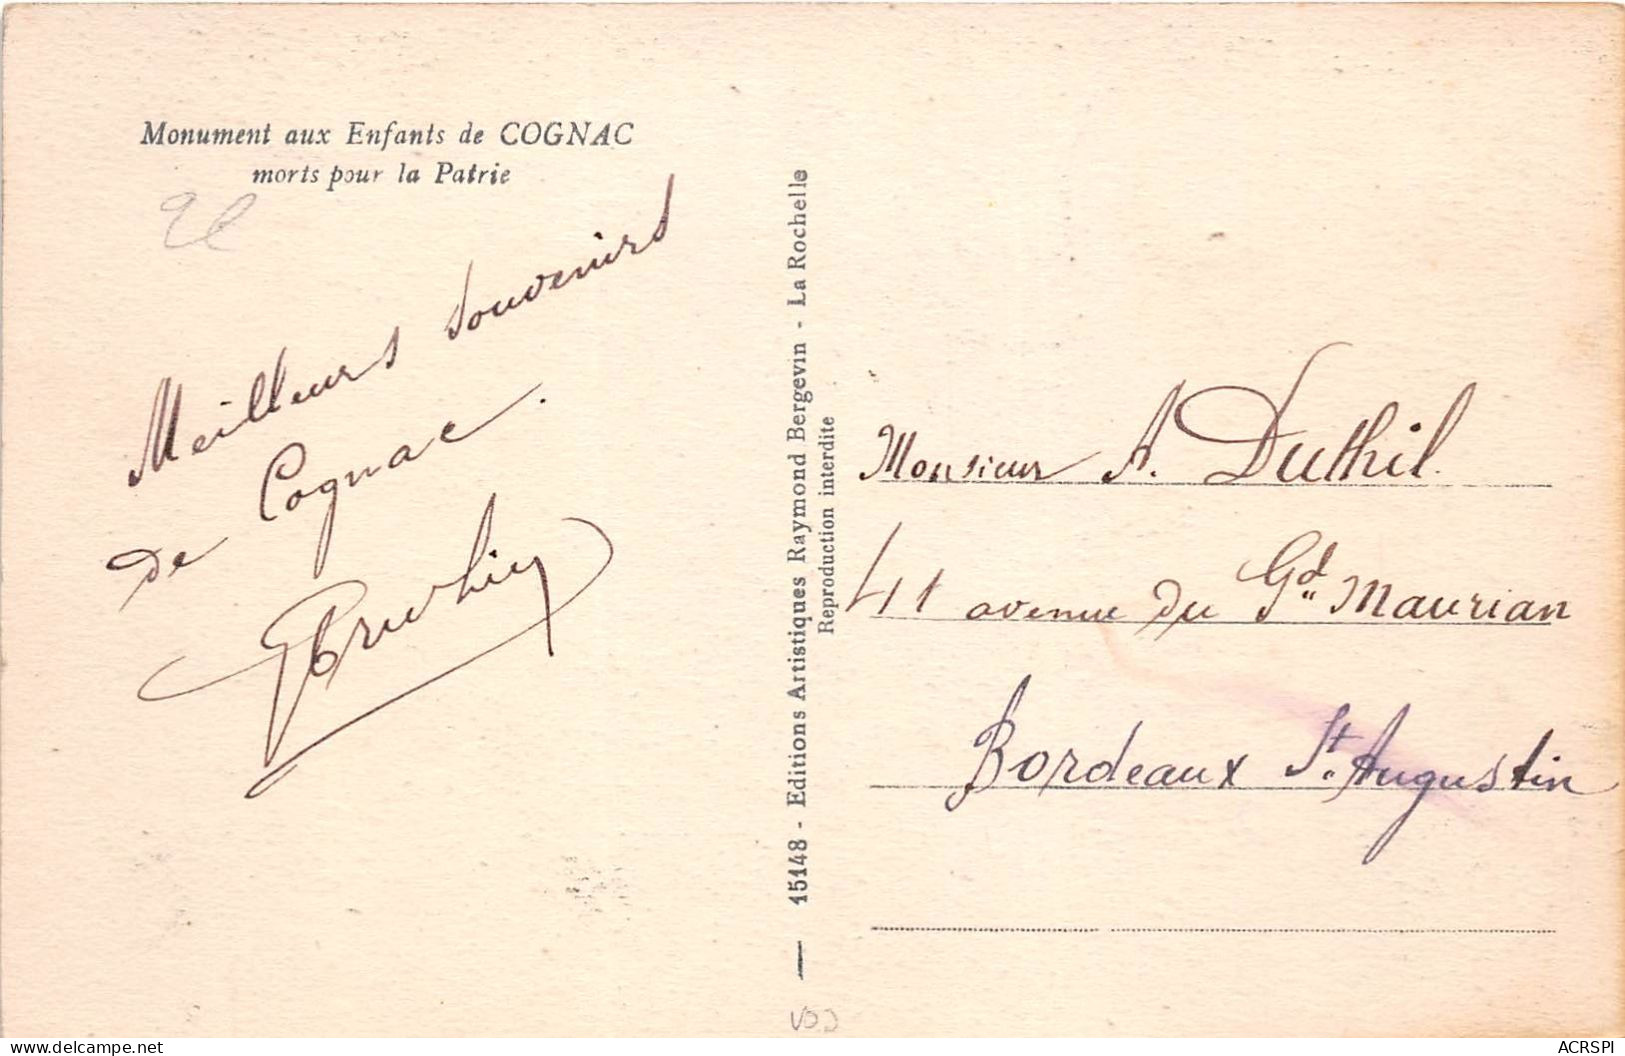 Monument aux Enfants de COGNAC
morts pour la Patrie
Meilleurs souvenirs
de Cognac.
15148 - Editions Artistiques Raymond Bergevin - La Rochelle
Reproduction interdite
Monsieur A. Duthil.
41 avenue du Gd Maurian
Bordeaux St. Augustin
delcampe.net
ACRSPI